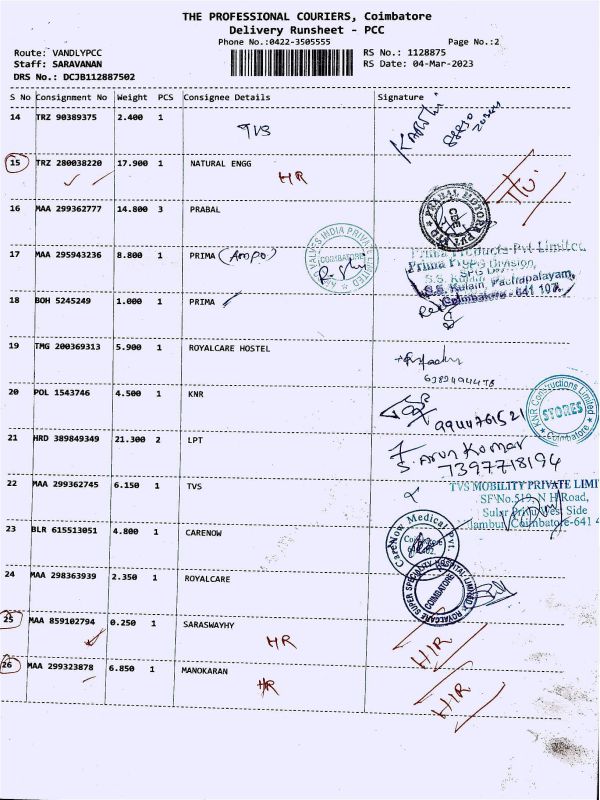 THE PROFESSIONAL COURIERS, Coimbatore
Delivery Runsheet - PCC
Phone No.:0422-3505555 Page No.:2
Route: VANDLYPCC RS No.: 1128875
Staff: SARAVANAN RS Date: 04-Mar-2023
DRS No.: DCJB112887502
S No Consignment No Weight PCS Consignee Details Signature
14 TRZ 90389375 2.400 1 TVS
15 TRZ 280038220 17.900 1 NATURAL ENGG
HR
16 MAA 299362777 14.800 3 PRABAL
PRABAL MOTORS PVT LTD
CBE
17 MAA 295943236 8.800 1 PRIMA (Ampo)
VALVES INDIA PRIVATE LIMITED
COIMBATORE
Prima Products Pvt Limited
Division,
S.S. Kulam, Vachapalayam,
Coimbatore - 641 107.
18 BOH 5245249 1.000 1 PRIMA
19 TMG 200369313 5.900 1 ROYALCARE HOSTEL
20 POL 1543746 4.500 1 KNR
9944761521
KNR Constructions Limited
STORES
Coimbatore
21 HRD 389849349 21.300 2 LPT
S Arun Kumar
7397718194
22 MAA 299362745 6.150 1 TVS
TVS MOBILITY PRIVATE LIMI
SF No.519, N H Road,
Sulur Privu West Side
Coimbatore-641 4
23 BLR 615513051 4.800 1 CARENOW
CareNow Medical Pvt.
Coimbatore
24 MAA 298363939 2.350 1 ROYALCARE
ROYALCARE SUPER SPECIALITY HOSPITAL LIMITED
COIMBATORE
25 MAA 859102794 0.250 1 SARASWAYHY
HR HR
26 MAA 299323878 6.850 1 MANOKARAN
HR HR